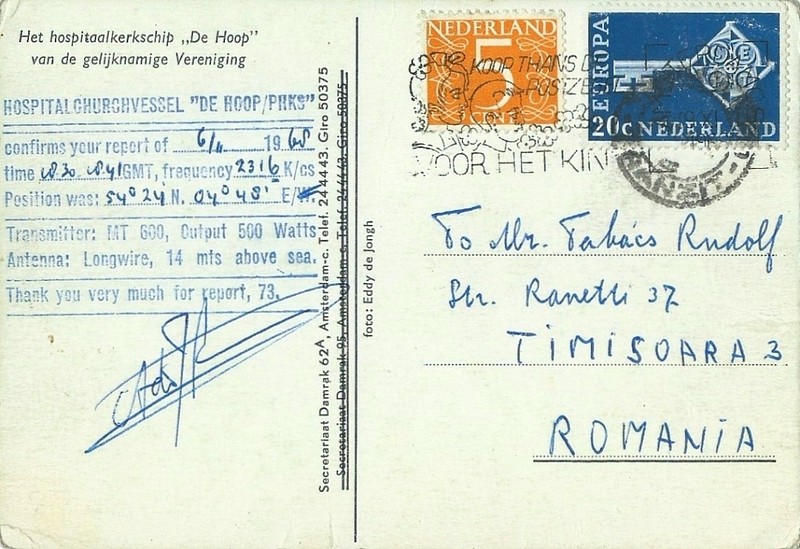 Het hospitaalkerkschip „De Hoop”
van de gelijknamige Vereniging
HOSPITALCHURCHVESSEL "DE HOOP/PHKS"
confirms your report of 6/11 1968
time 1830 1841 GMT, frequency 2316 K/cs
Position was: 54° 24' N. 04° 48' E/W.
Transmitter: MT 600, Output 500 Watts
Antenna: Longwire, 14 mts above sea.
Thank you very much for report, 73.
Secretariaat Damrak 62A, Amsterdam-c. Telef. 24 44 43. Giro 50375
Secretariaat Damrak 95, Amsterdam-c. Telef. 24 44 43. Giro 50375
foto: Eddy de Jongh
NEDERLAND
5
EUROPA
20c NEDERLAND
KOOP THANS DE
POSTZEGEL
VOOR HET KIN
To Mr. Takács Rudolf
Str. Ranetti 37
TIMISOARA 3
ROMANIA